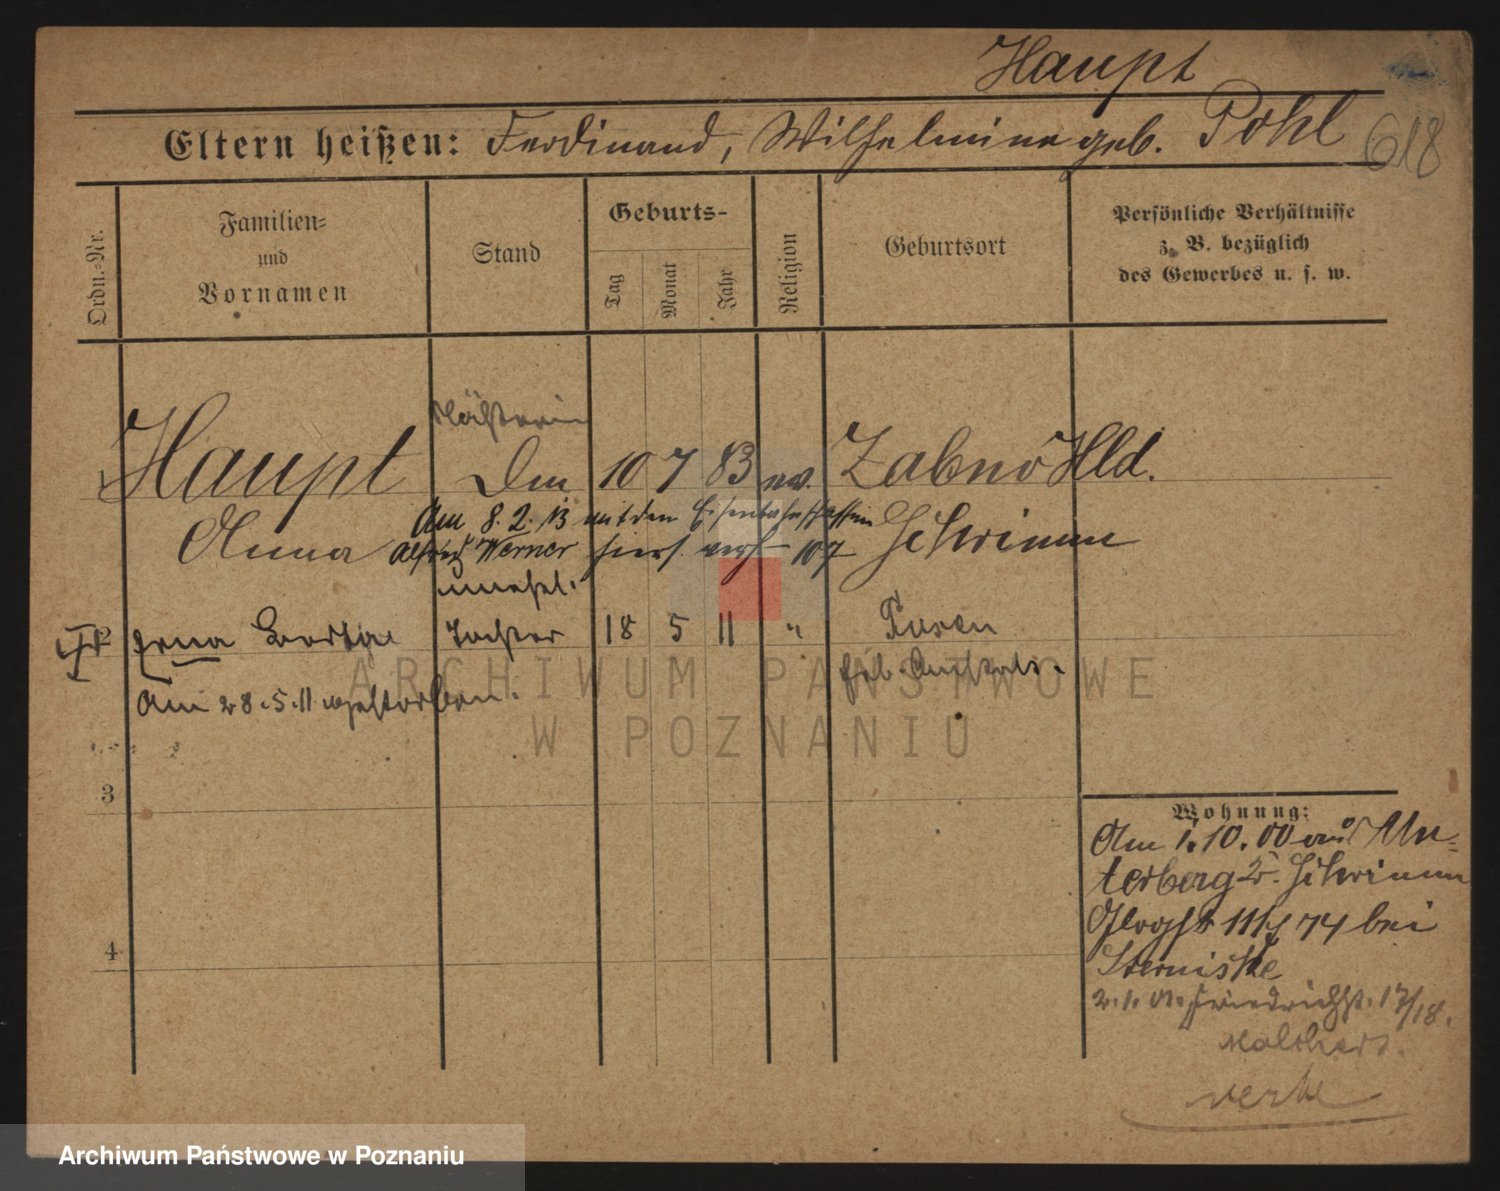 Haupt
Eltern heißen: Ferdinand, Wilhelmine geb. Pohl 618
Ordn.-Nr.
Familien-
und
Vornamen
Stand
Geburts-
Tag
Monat
Jahr
Religion
Geburtsort
Persönliche Verhältnisse
z. B. bezüglich
des Gewerbes u. s. w.
Näherin
1 Haupt 10 7 83 ev. Zabno Hld.
Am 8. 2. 13 mit dem
Anna Alfred Werner hiers. verh. 107 Schrimm
unehel.
2 Erna Tochter 18 5 11 " Posen
Am 28.5.11 gestorben.
3
4
Wohnung:
Am 1.10.00 aus Un-
terberg Kr. Schrimm
74 bei
2.1.01. Friedrichst. 17/18.
ARCHIWUM PAŃSTWOWE
W POZNANIU
Archiwum Państwowe w Poznaniu